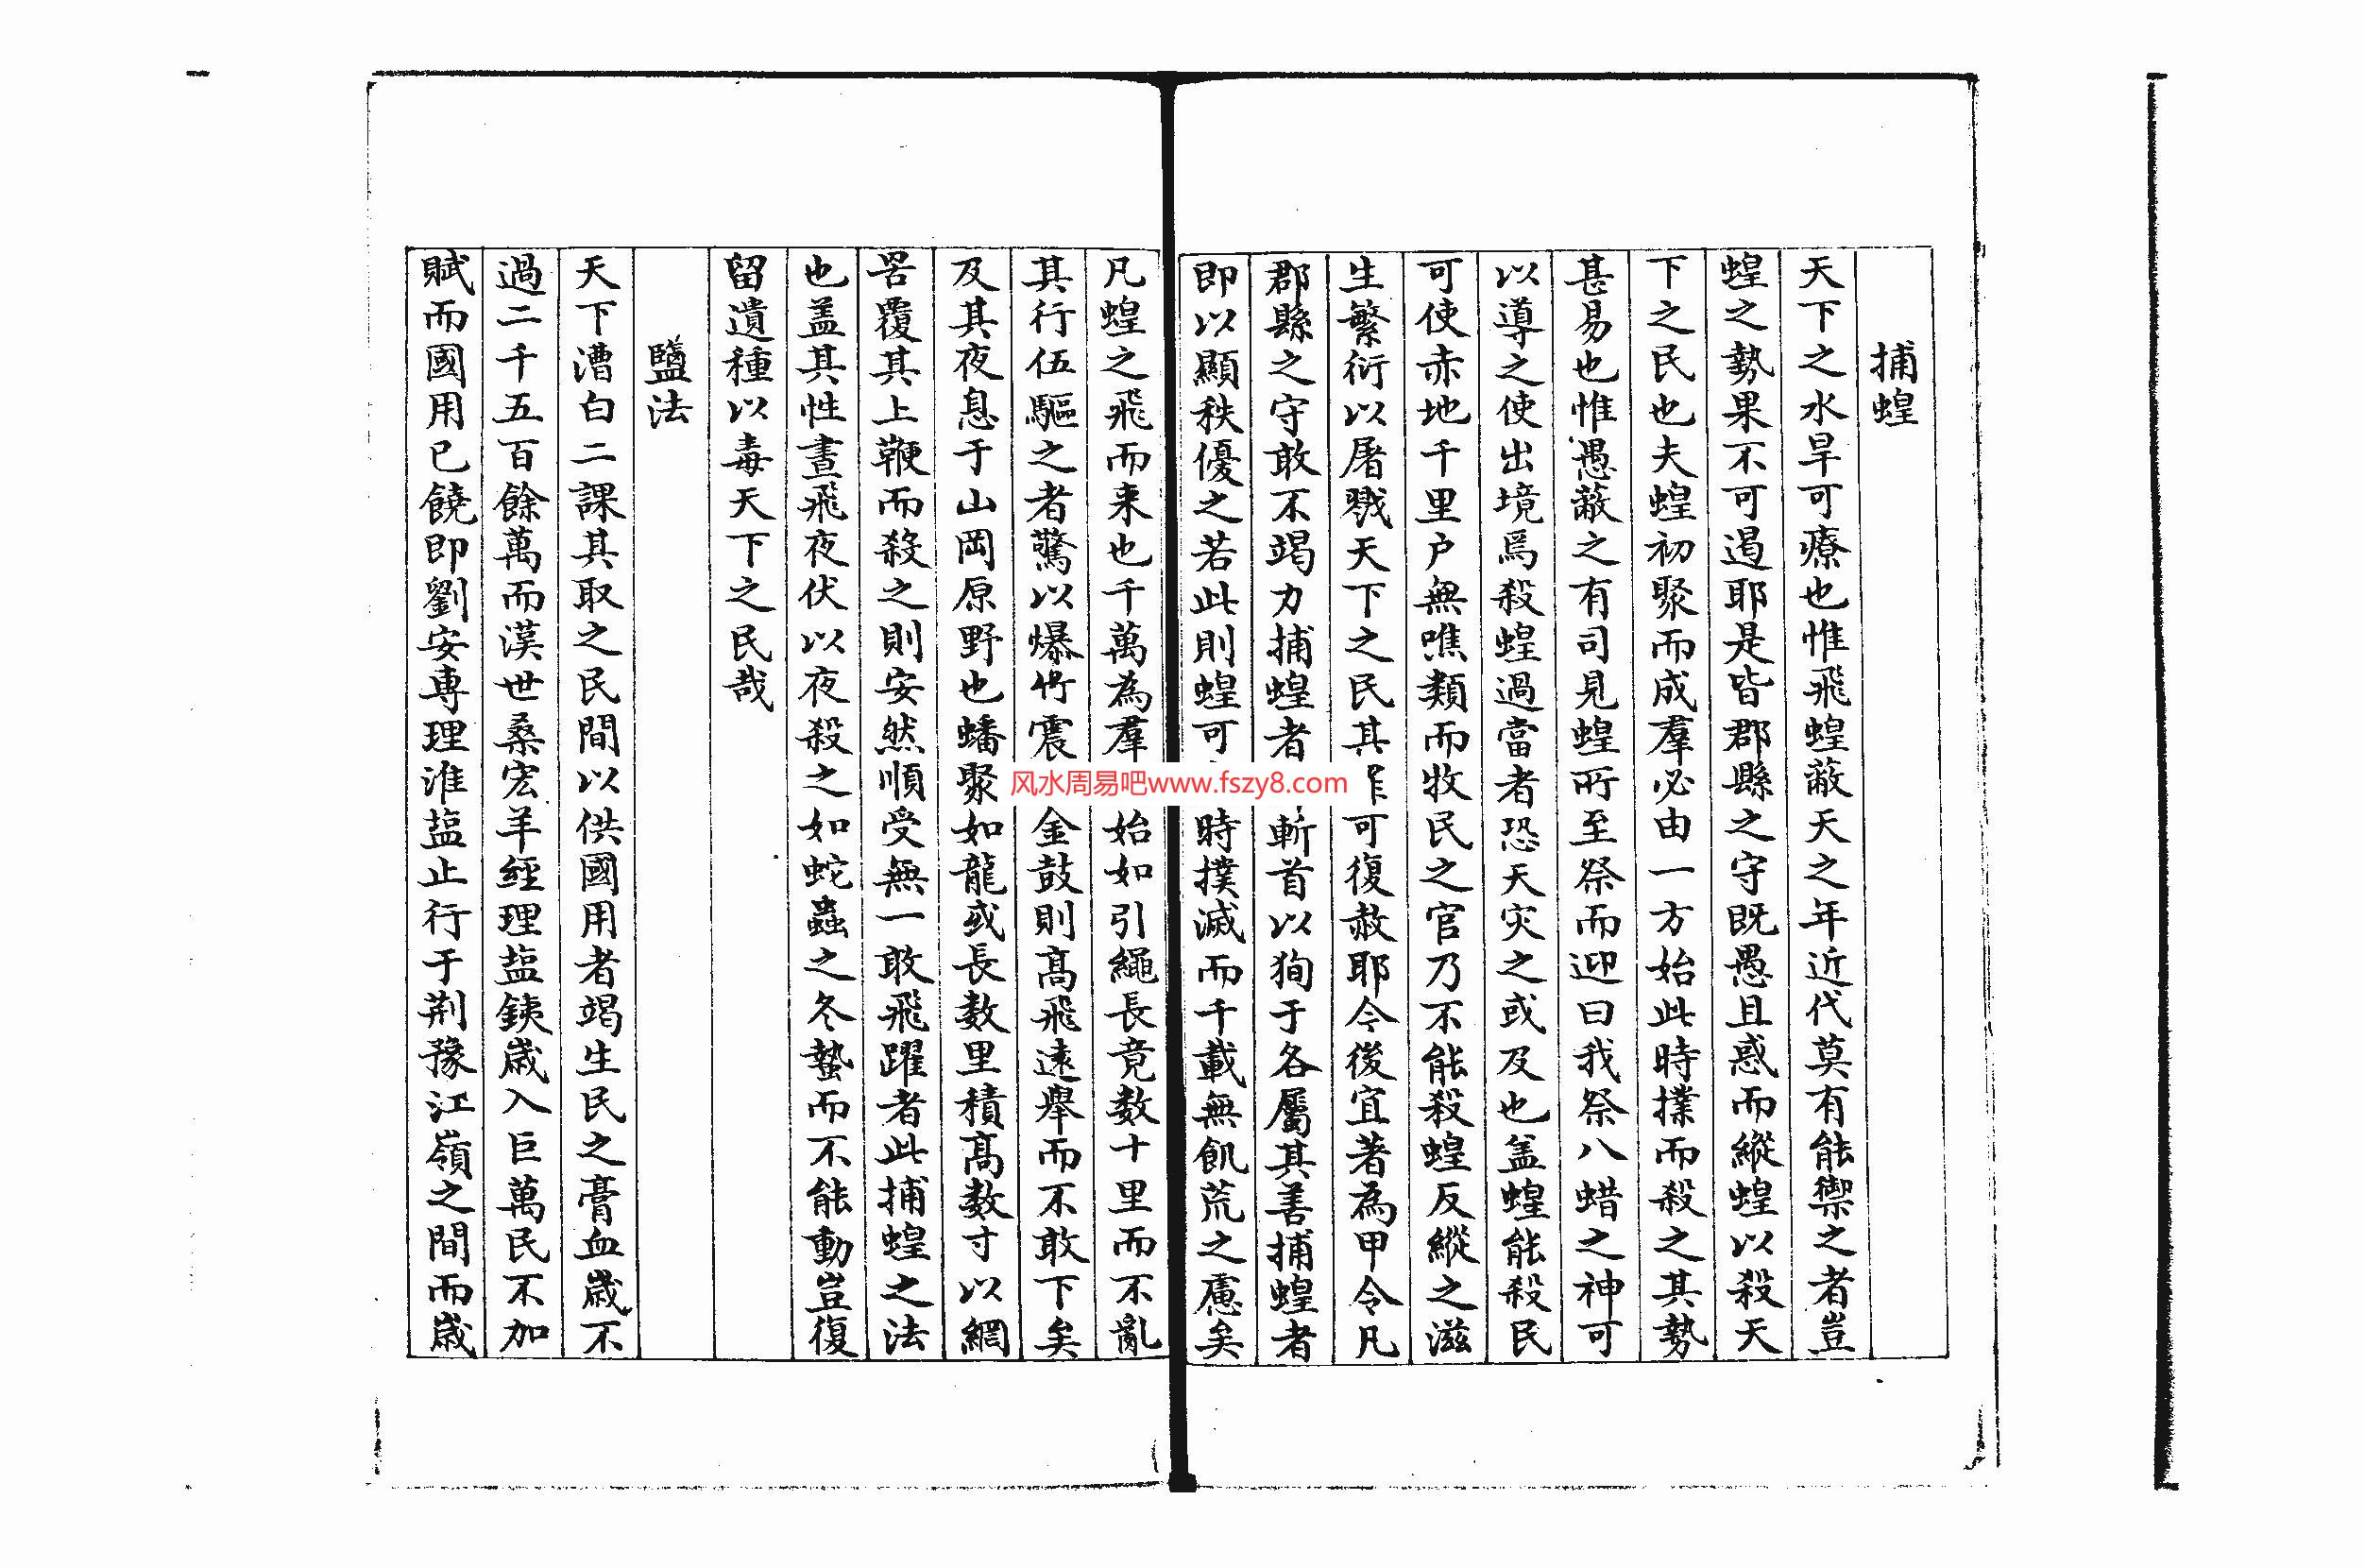 捕蝗
天下之水旱可療也惟飛蝗蔽天之年近代莫有能禦之者豈
蝗之勢果不可遏耶是皆郡縣之守既愚且惑而縱蝗以殺天
下之民也夫蝗初聚而成羣必由一方始此時撲而殺之其勢
甚易也惟愚蔽之有司見蝗所至祭而迎曰我祭八蜡之神可
以導之使出境焉殺蝗過當者恐天灾之或及也盖蝗能殺民
可使赤地千里户無噍類而牧民之官乃不能殺蝗反縱之滋
生繁衍以屠戮天下之民其可復赦耶令後宜著為甲令凡
郡縣之守敢不竭力捕蝗者斬首以狥于各屬其善捕蝗者
即以顯秩優之若此則蝗可時撲滅而千載無飢荒之慮矣
凡蝗之飛而来也千萬為羣始如引繩長竟数十里而不亂
其行伍驅之者驚以爆竹震金鼓則髙飛遠舉而不敢下矣
及其夜息于山岡原野也蟠聚如龍或長数里積髙数寸以網
罟覆其上鞭而殺之則安然順受無一敢飛躍者此捕蝗之法
也盖其性晝飛夜伏以夜殺之如蛇蟲之冬蟄而不能動豈復
留遺種以毒天下之民哉
鹽法
天下漕白二課其取之民間以供國用者竭生民之膏血歲不
過二千五百餘萬而漢世桑宏羊經理盐鐵歲入巨萬民不加
賦而國用已饒即劉安專理淮盐止行于荆豫江嶺之間而歲
风水周易吧www.fszy8.com